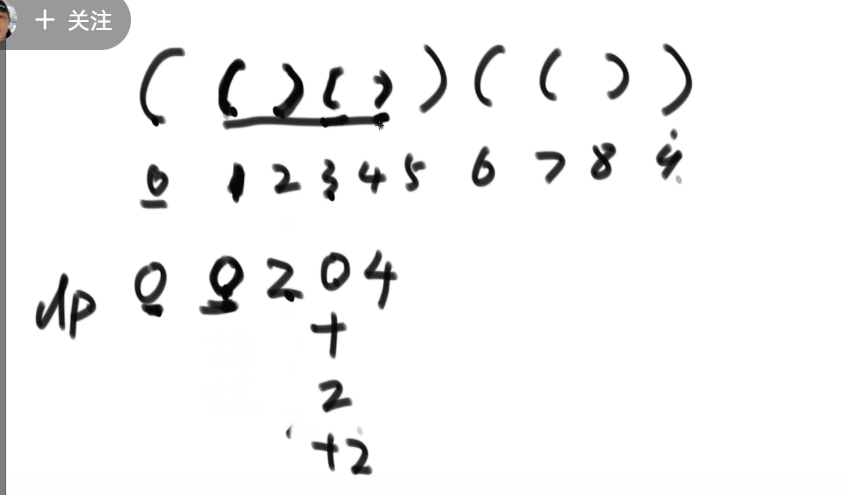 + 关注
( ( ) ( ) ) ( ( ) )
0 1 2 3 4 5 6 7 8 9
dp 0 0 2 0 4
+
2
+2